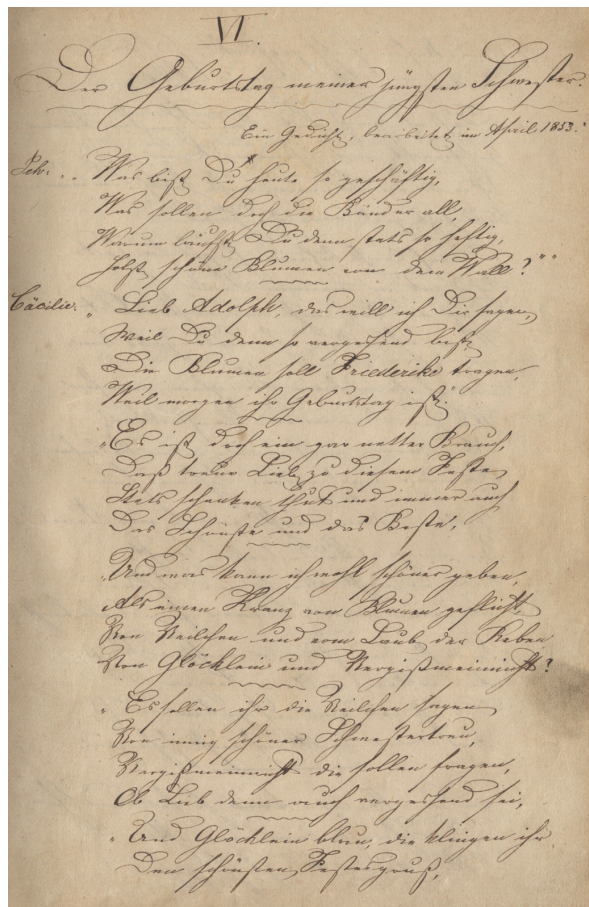 VI.
Der Geburtstag meiner jüngsten Schwester.
Ein Gedicht, bearbeitet im April 1853.
Ich: „Was bist Du heute so geschäftig,
Was sollen doch die Bänder all,
Warum läufst Du denn stets so heftig,
Holst schöne Blumen von dem Wall?"
Cäcilie: „Lieb Adolph, das will ich Dir sagen,
Weil Du denn so vergessend bist,
Die Blumen soll Friederike tragen,
Weil morgen ihr Geburtstag ist."
„Es ist doch ein gar netter Brauch,
Daß treue Lieb zu diesem Feste
Stets schenken thut und immer auch
Das Schönste und das Beste,
„Und was kann ich wohl schöner geben,
Als einen Kranz von Blumen geflicht,
Von Veilchen und vom Laub der Reben
Von Glöcklein und Vergißmeinnicht?
„Es sollen ihr die Veilchen sagen
Von innig schöner Schwestertreu,
Vergißmeinnicht die sollen fragen,
Ob Lieb denn auch vergessend sei,
„Und Glöcklein blau, die klingen ihr
Den schönsten Festesgruß,